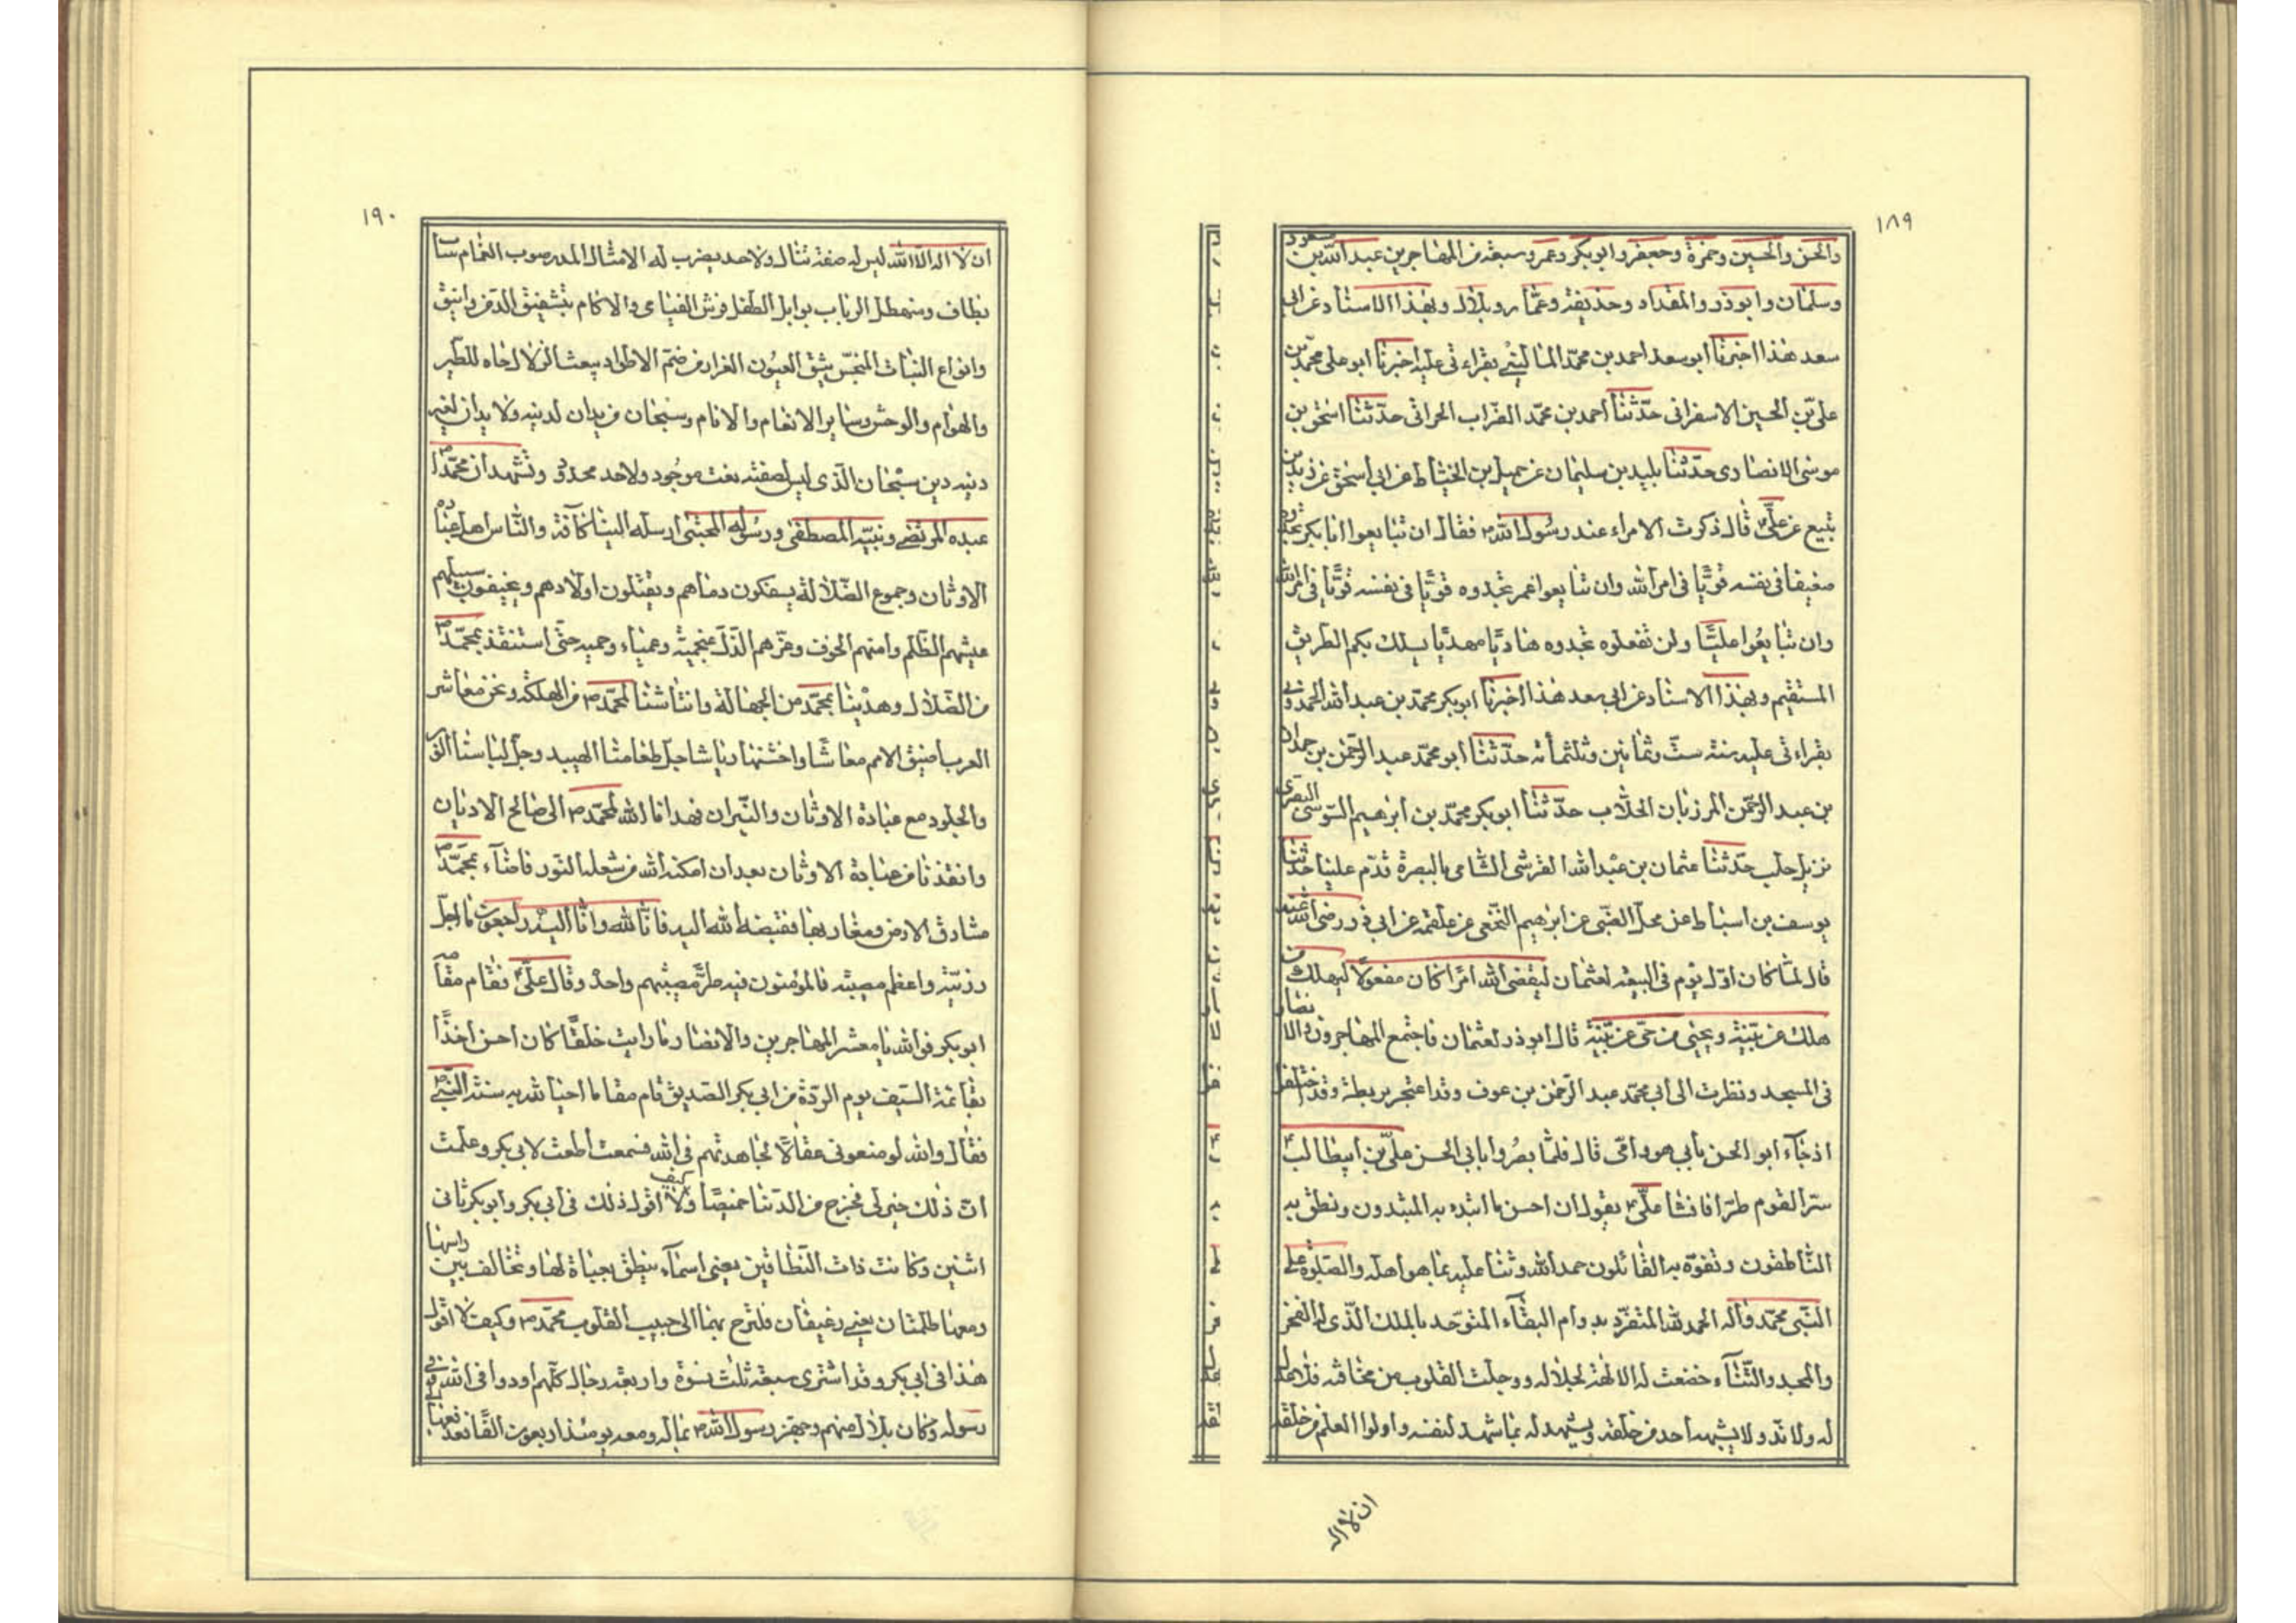 ١٨٩
والحسن والحسين وحمزة وجعفر وابوبكر وعمر وسبعة من المهاجرين عبد الله بن مسعود
وسلمان وابوذر والمقداد وحذيفة وعمار وبلال وبهذا الاسناد عن ابى
سعد هذا اخبرنا ابو سعد احمد بن محمد المالينى بقراءتى عليه اخبرنا ابو على محمد بن
على بن الحسين الاسفرانى حدثنا احمد بن محمد الحرانى حدثنا اسحق بن
موسى الانصارى حدثنا بليد بن سليمان عن جميل بن الخياط عن ابى اسحق عن زيد بن
تبيع عن على قال ذكرت الامراء عند رسول الله ص فقال ان تبايعوا ابابكر تجدوه
ضعيفا فى نفسه قويا فى امر الله وان تبايعوا عمر تجدوه قويا فى نفسه قويا فى امر الله
وان تبايعوا عليا ولن تفعلوه تجدوه هاديا مهديا يسلك بكم الطريق
المستقيم وبهذا الاسناد عن ابى سعد هذا اخبرنا ابوبكر محمد بن عبد الله
بقراءتى عليه سنة ست وثمانين وثلثمأئة حدثنا ابو محمد عبد الرحمن بن حمدان
بن عبد الرحمن المرزبان الجلاب حدثنا ابوبكر محمد بن ابرهيم السوسى البصرى
نزيل حلب حدثنا عثمان بن عبد الله القرشى الشامى بالبصرة قدم علينا حدثنا
يوسف بن اسباط عن محل الضبى عن ابرهيم النخعى عن علقمة عن ابى ذر رضى الله عنه
قال لما كان اول يوم فى البيعة لعثمان ليقضى الله امرا كان مفعولا ليهلك من
هلك عن بينة ويحيى من حى عن بينة قال ابوذر لعثمان فاجتمع المهاجرون والانصار
فى المسجد ونظرت الى ابى محمد عبد الرحمن بن عوف وقد اعتجر بريطة وقد اختلفوا
اذ جاء ابو الحسن بأبى هو وامى قال فلما بصروا بابى الحسن على بن ابيطالب ع
سر القوم طرا فانشا على ع يقول ان احسن ما ابتده به المبتدون ونطق به
الناطقون وتفوه به القائلون حمد الله وثنا عليه بما هو اهله والصلوة على
النبى محمد وآله الحمد لله المتفرد بدوام البقاء المتوحد بالملك الذى له الفخر
والمجد والثناء خضعت له الالهة لجلاله ووجلت القلوب من مخافته فلا عدل
له ولا ند ولا يشبهه أحد من خلقه ويشهد له بما شهد لنفسه واولوا العلم من خلقه
ان لا اله
١٩٠
ان لا اله الا الله ليس له صفة تنال ولا حد يضرب له الامثال المدر صوب الغمام
نطاف ومنهطل الرباب بوابل الطفل فرش الفيافى والاكام بتشقيق الدمن وانيق
وانواع النبات المنجس بشق العيون الغرار من صم الاطواد يبعث الزلال حياه للطير
والهوام والوحش وسائر الانعام والانام وسبحان من يدان لدينه ولا يدان لغير
دينه دين سبحان الذى ليس لصفته نعت موجود ولا حد محدود ونشهد ان محمدا ص
عبده المرتضى ونبيه المصطفى ورسوله المجتبى ارسله الينا كافة والناس اهل عبادة
الاوثان وجموع الضلالة يسفكون دماهم ويقتلون اولادهم ويخيفون سبيلهم
عيشهم الظلم وامنهم الخوف وعزهم الذل عنجهية وعمياء وحمية حتى استنقذ بمحمد ص
من الضلال وهدينا بمحمد من الجهالة وانتاشنا لمحمد ص من الهلكة ونحن معاشر
العرب اضيق الامم معاشا واخشنها رياشا جل طعامنا الهبيد وجل لباسنا الوبر
والجلود مع عبادة الاوثان والنيران فهدانا الله لمحمد ص الى صالح الاديان
وانقذنا من عبادة الاوثان بعد ان امكنه الله من شعلة النور فاضاء بمحمد ص
مشارق الارض ومغاربها فقبضه الله اليه فانا لله وانا اليه راجعون ما اجل
رزيته واعظم مصيبته فالمؤمنون فيه طر مصيبتهم واحد وقال على فقام مقاما
ابوبكر فوالله يا معشر المهاجرين والانصار ما رايت خلقا كان احسن اخذا
بقائمة السيف يوم الردة من ابى بكر الصديق قام مقاما احيا لله به سنة النبى ص
فقال والله لو منعونى عقالا لجاهدتهم فى الله فسمعت اطعت لابى بكر وعلمت
ان ذلك خير لى فخرج من الدنيا خميصا وكيف لا اقول ذلك فى ابى بكر وابوبكر ثانى
اثنين وكانت ذات النطاقين يعنى اسماء ينطق بعباة لها وتخالف بين راسها
ومعها طلمتان يعنى رغيفان فلترح بهما الى حبيب القلوب محمد ص وكيف لا اقول
هذا فى ابى بكر وقد اشترى سبعة ثلث نسوة واربعة رجال كلهم اوذوا فى الله وفى
رسوله وكان بلال منهم وجهز رسول الله ص بماله ومعه يومئذ اربعون الفا فدفعها